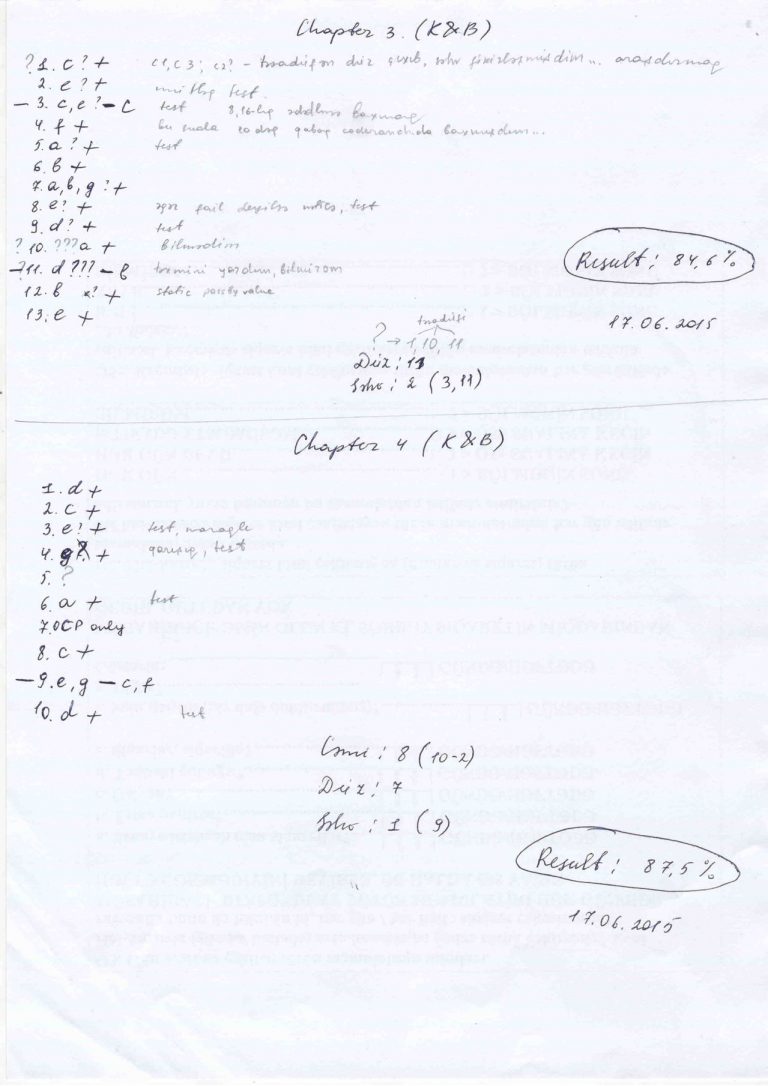 Chapter 3. (K&B)
? 1. c ? + c1, c3; c2? - təsadüfən düz çıxıb, səhv fikirləşmişdim... araşdırmaq
2. e ? + mütləq test
- 3. c, e ? - c test 8, 16-lıq ədədlərə baxmaq
4. f + bu suala qabaq coderanchda baxmışdım...
5. a ? + test
6. b +
7. a, b, g ? +
8. e ? + əgər fail deyilsə, test
9. d ? + test
? 10. ??? a + bilmədim
- 11. d ??? - b təxmini yazdım, bilmirəm
12. b ? + static pass by value
13. e +
Result: 84,6%
17.06.2015
təsadüf
? → 1, 10, 11
Düz: 11
Səhv: 2 (3, 11)
Chapter 4 (K&B)
1. d +
2. c +
3. e ? + test, maraqlı
4. g + qarışıq, test
5. ?
6. a + test
7. OCP only
8. c +
- 9. e, g - c, f
10. d + test
Cəmi: 8 (10-2)
Düz: 7
Səhv: 1 (9)
Result: 87,5%
17.06.2015